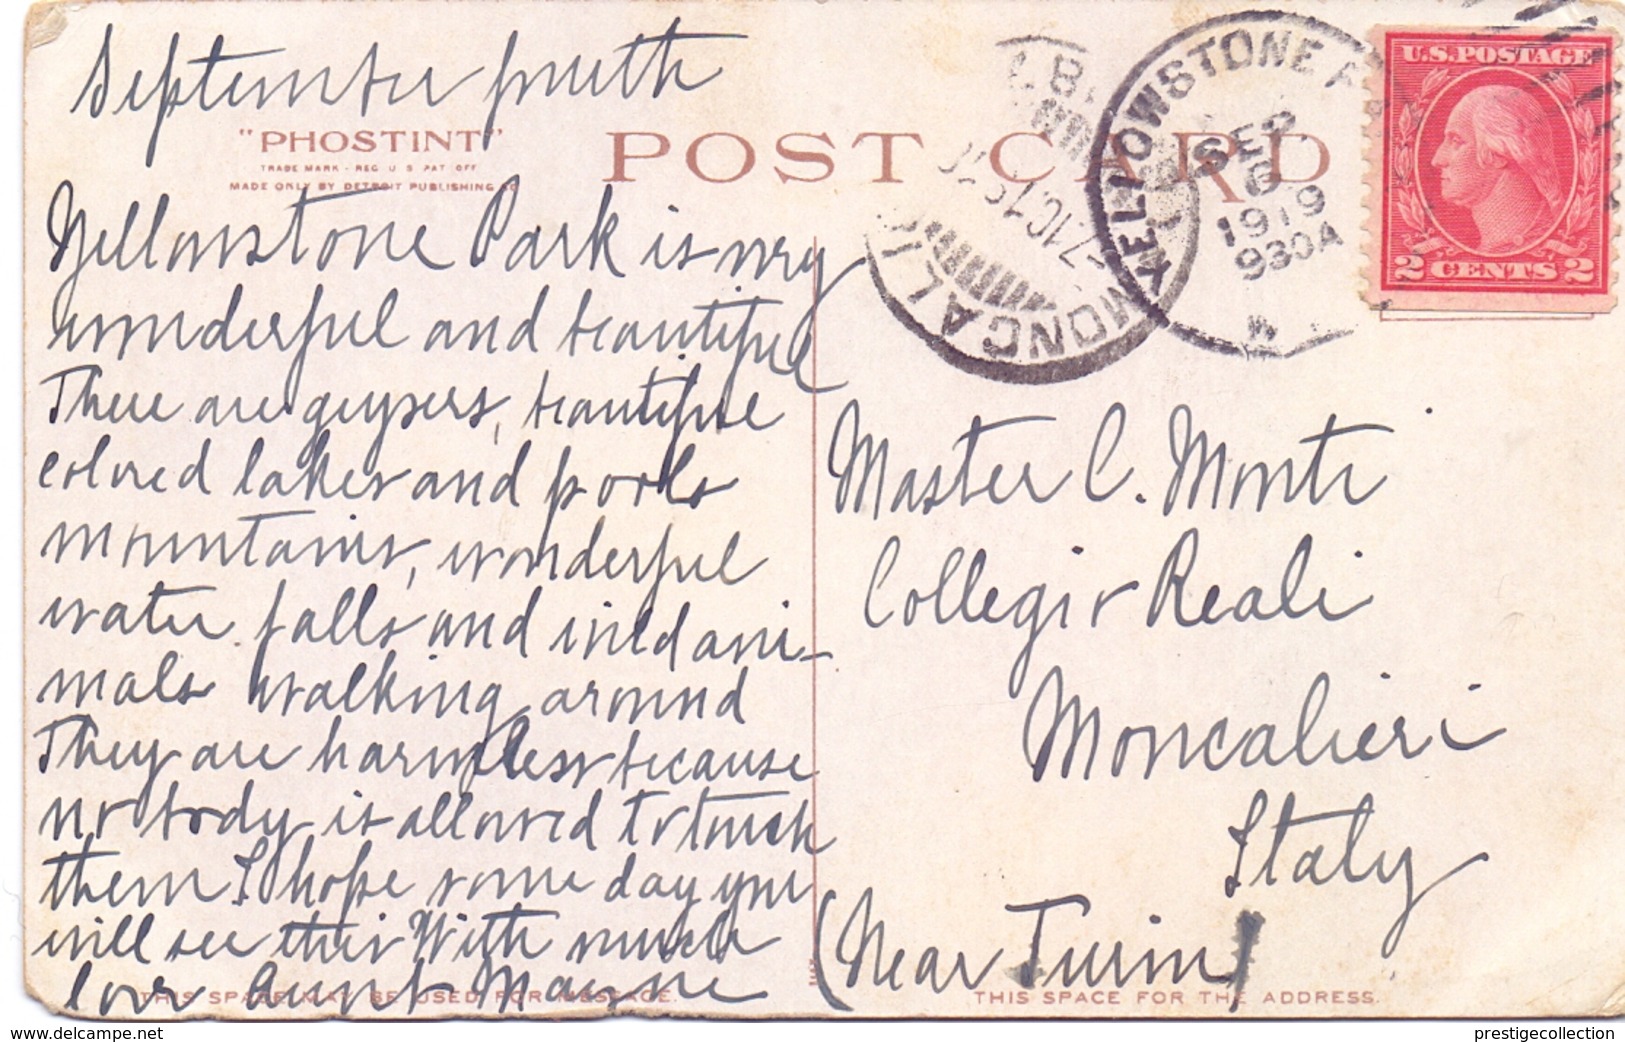 September fourth
"PHOSTINT"
TRADE MARK - REG U S PAT OFF
MADE ONLY BY DETROIT PUBLISHING CO
POST CARD
Yellowstone Park is very
wonderful and beautiful
There are geysers, beautiful
colored lakes and pools
mountains, wonderful
water falls and wild ani-
mals walking around
They are harmless because
no body is allowed to touch
them. I hope some day you
will see this With much
love Aunt Mayne
THIS SPACE MAY BE USED FOR MESSAGE.
MONCALI
7.10.19
YELLOWSTONE P
SEP
6
1919
930A
U.S.POSTAGE
2 CENTS 2
Master C. Monti
Collegio Reali
Moncalieri
Italy
(Near Turin)
THIS SPACE FOR THE ADDRESS.
delcampe.net
prestigecollection